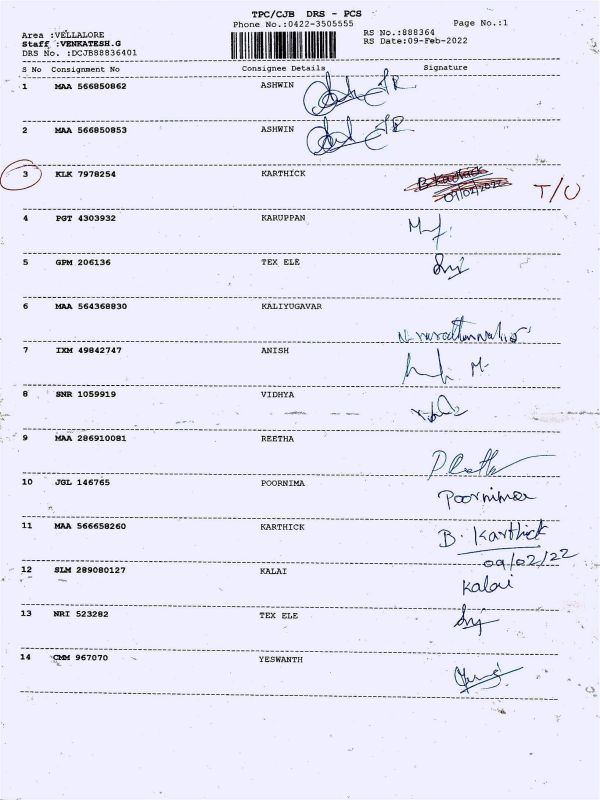 TPC/CJB DRS - PCS
Phone No.:0422-3505555 Page No.:1
Area :VELLALORE RS No.:888364
Staff :VENKATESH.G RS Date:09-Feb-2022
DRS No. :DCJB88836401
S No Consignment No Consignee Details Signature
1 MAA 566850862 ASHWIN
2 MAA 566850853 ASHWIN
3 KLK 7978254 KARTHICK B. Karthick T/U
09/02/2022
4 PGT 4303932 KARUPPAN
5 GPM 206136 TEX ELE
6 MAA 564368830 KALIYUGAVAR
7 IXM 49842747 ANISH
8 SNR 1059919 VIDHYA
9 MAA 286910081 REETHA
10 JGL 146765 POORNIMA Poornima
11 MAA 566658260 KARTHICK B. Karthick
09/02/22
12 SLM 289080127 KALAI Kalai
13 NRI 523282 TEX ELE
14 CMM 967070 YESWANTH